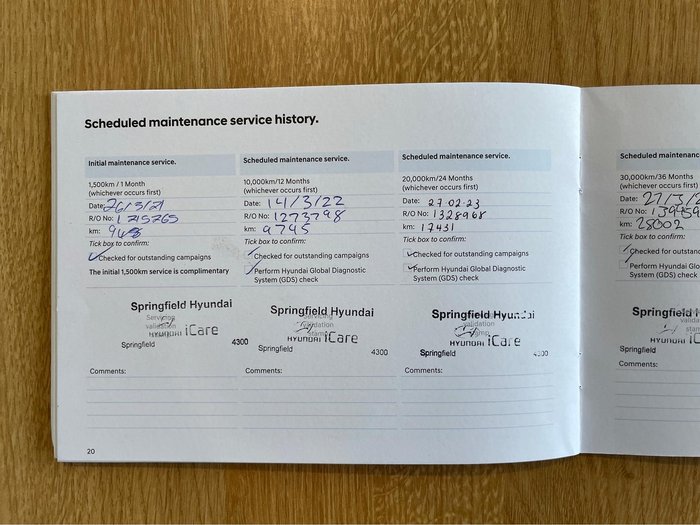 Scheduled maintenance service history.
Initial maintenance service.
1,500km / 1 Month
(whichever occurs first)
Date: 26/5/21
R/O No: 1215765
km:
Tick box to confirm:
Checked for outstanding campaigns
The initial 1,500km service is complimentary
Springfield Hyundai
Servicing
validation
HYUNDAI iCare
Springfield 4300
Comments:
Scheduled maintenance service.
10,000km/12 Months
(whichever occurs first)
Date: 14/3/22
R/O No: 1273798
km: 9795
Tick box to confirm:
Checked for outstanding campaigns
Perform Hyundai Global Diagnostic
System (GDS) check
Springfield Hyundai
Servicing
validation
stamp
HYUNDAI iCare
Springfield 4300
Comments:
Scheduled maintenance service.
20,000km/24 Months
(whichever occurs first)
Date: 27.02.23
R/O No: 1328968
km: 17431
Tick box to confirm:
Checked for outstanding campaigns
Perform Hyundai Global Diagnostic
System (GDS) check
Springfield Hyundai
validation
stamp
HYUNDAI iCare
Springfield 4300
Comments:
20
Scheduled maintenance
30,000km/36 Months
(whichever occurs first)
Date: 27/3/2
R/O No:
km: 28002
Tick box to confirm:
Checked for outstanding
Perform Hyundai Global
System (GDS) check
Springfield H
validation
HYUNDAI
Springfield
Comments: